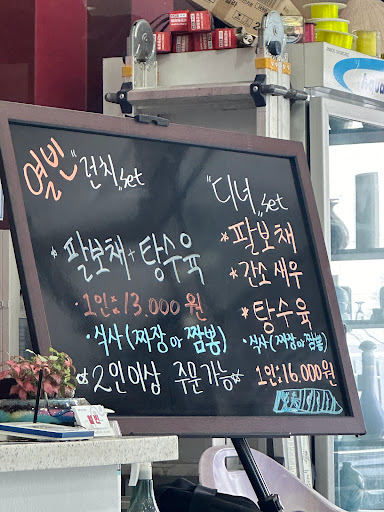 열빈 "런치" set
팔보채 + 탕수육
· 1인 : 13.000원
· 식사 (짜장 or 짬뽕)
* 2인이상 주문가능 *
"디너" set
* 팔보채
* 간소새우
* 탕수육
· 식사 (짜장 or 짬뽕)
1인 : 16.000원